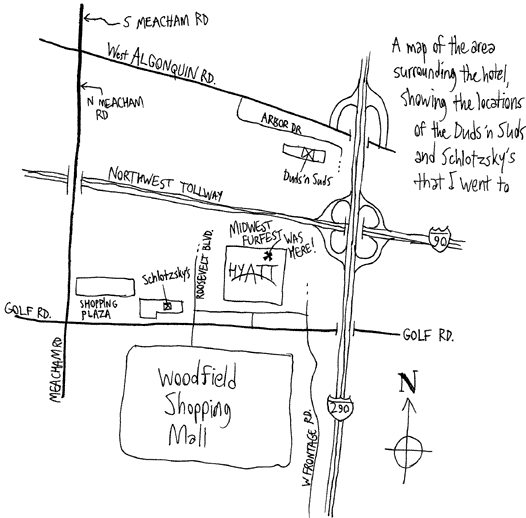 S MEACHAM RD
West ALGONQUIN RD.
N MEACHAM
RD
A map of the area
surrounding the hotel,
showing the locations
of the Duds 'n Suds
and Schlotzsky's
that I went to
ARBOR DR
Duds 'n Suds
NORTHWEST TOLLWAY
90
MIDWEST
FURFEST
WAS
HERE!
HYATT
ROOSEVELT BLVD.
Schlotzsky's
SHOPPING
PLAZA
GOLF RD.
GOLF RD.
MEACHAM RD
Woodfield
Shopping
Mall
W FRONTAGE RD.
290
N